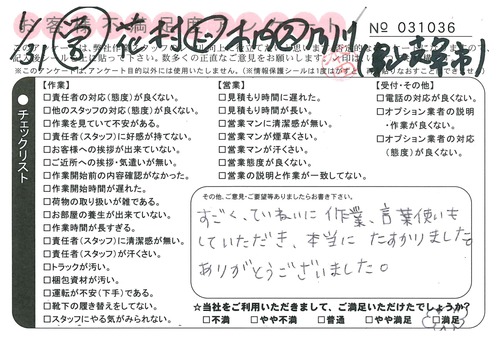 お客様不満足度アンケート
№ 031036
5/31 ㊂ 花村
このアンケートは、弊社作
※このアンケートは、アンケート目的以外には使用いたしません。(※情報保護シールは1度はがす
チェックリスト
【作業】
□責任者の対応(態度)が良くない。
□他のスタッフの対応(態度)が良くない。
□作業を見ていて不安がある。
□責任者(スタッフ)に好感が持てない。
□お客様への挨拶が出来ていない。
□ご近所への挨拶・気遣いが無い。
□作業開始前の内容確認がなかった。
□作業開始時間が遅れた。
□荷物の取り扱いが雑である。
□お部屋の養生が出来ていない。
□作業時間が長すぎる。
□責任者(スタッフ)に清潔感が無い。
□責任者(スタッフ)が汗くさい。
□トラックが汚い。
□梱包資材が汚い。
□運転が不安(下手)である。
□靴下の履き替えをしてない。
□スタッフにやる気がみられない。
【営業】
□見積もり時間に遅れた。
□見積もり時間が長い。
□営業マンに清潔感が無い。
□営業マンが煙草くさい。
□営業マンが汗くさい。
□営業態度が良くない。
□営業の説明と作業が一致してない。
【受付・その他】
□電話の対応が良くない。
□オプション業者の説明
・作業が良くない。
□オプション業者の対応
(態度)が良くない。
その他、ご意見・ご要望等ありましたらお書き下さい。
すごく、ていねいに作業、言葉使いも
していただき、本当にたすかりました。
ありがとうございました。
☆当社をご利用いただきまして、ご満足いただけたでしょうか?
□不満 □やや不満 □普通 □やや満足 □満足